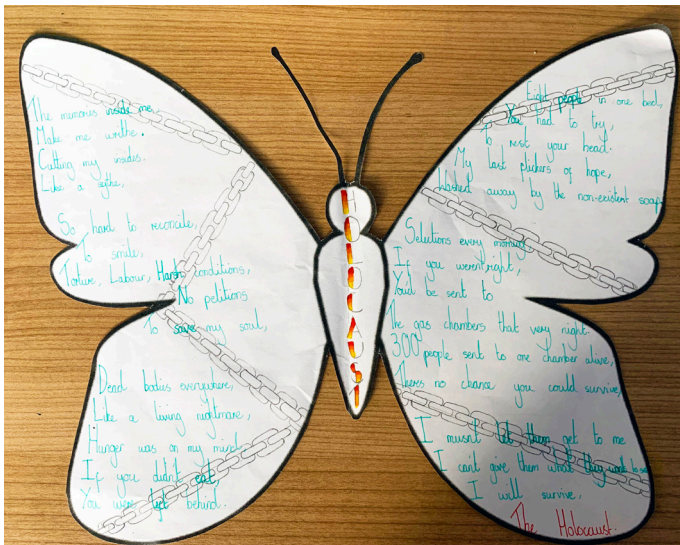 The memories inside me,
Make me writhe.
Cutting my insides.
Like a sythe,
So hard to reconcile,
To smile,
Torture, Labour, Harsh conditions,
No petitions
To save my soul,
Dead bodies everywhere,
Like a living nightmare,
Hunger was on my mind
If you didn't eat,
You were left behind.
HOLOCAUST
Eight people in one bed,
You had to try,
To rest your head.
My last flickers of hope,
Washed away by the non-existent soap
Selections every morning,
If you weren't right,
You'd be sent to
The gas chambers that very night.
300 people sent to one chamber alive,
Theres no chance you could survive,
I musn't let them get to me
I can't give them what they want to see
I will survive,
The Holocaust.